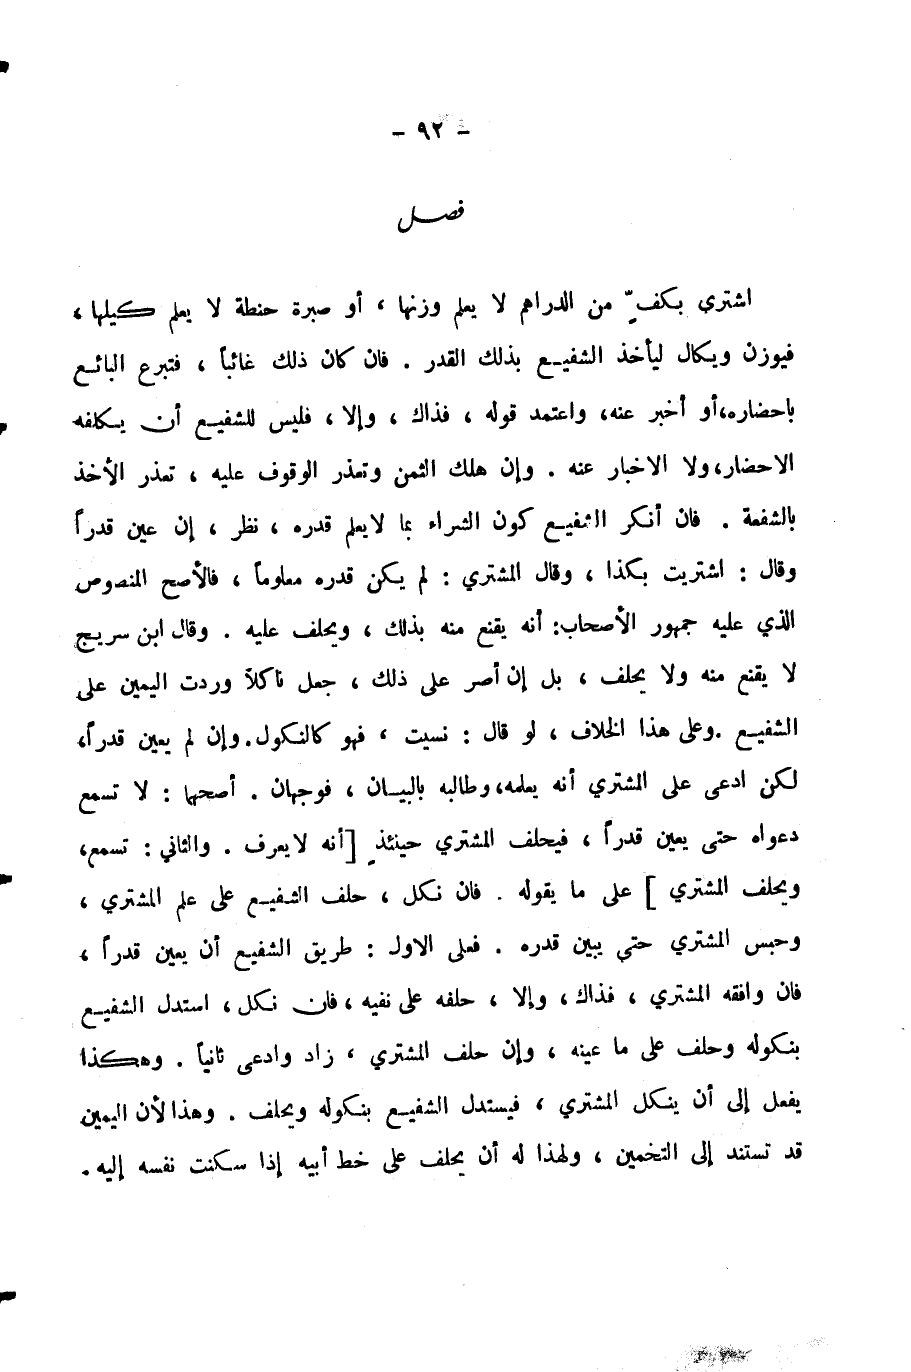 - ٩٢ -
فصل
اشتري بكفٍّ من الدراهم لا يعلم وزنها ، أو صبرة حنطة لا يعلم كيلها ،
فيوزن ويكال ليأخذ الشفيع بذلك القدر . فان كان ذلك غائباً ، فتبرع البائع
باحضاره،أو أخبر عنه، واعتمد قوله ، فذاك ، وإلا ، فليس للشفيع أن يكلفه
الاحضار،ولا الاخبار عنه . وإن هلك الثمن وتعذر الوقوف عليه ، تعذر الأخذ
بالشفعة . فان أنكر الشفيع كون الشراء بما لايعلم قدره ، نظر ، إن عين قدراً
وقال : اشتريت بكذا ، وقال المشتري : لم يكن قدره معلوماً ، فالأصح المنصوص
الذي عليه جمهور الأصحاب: أنه يقنع منه بذلك ، ويحلف عليه . وقال ابن سريج
لا يقنع منه ولا يحلف ، بل إن أصر على ذلك ، جعل ناكلاً وردت اليمين على
الشفيع .وعلى هذا الخلاف ، لو قال : نسيت ، فهو كالنكول.وإن لم يعين قدراً،
لكن ادعى على المشتري أنه يعلمه،وطالبه بالبيان ، فوجهان . أصحها : لا تسمع
دعواه حتى يعين قدراً ، فيحلف المشتري حينئذٍ [أنه لايعرف . والثاني : تسمع،
ويحلف المشتري ] على ما يقوله . فان نكل ، حلف الشفيع على علم المشتري ،
وحبس المشتري حتى يبين قدره . فعلى الاول : طريق الشفيع أن يعين قدراً ،
فان وافقه المشتري ، فذاك، وإلا ، حلفه على نفيه ،فان نكل، استدل الشفيع
بنكوله وحلف على ما عينه ، وإن حلف المشتري ، زاد وادعى ثانياً . وهكذا
يفعل إلى أن ينكل المشتري ، فيستدل الشفيع بنكوله ويحلف . وهذا لأن اليمين
قد تستند إلى التخمين ، ولهذا له أن يحلف على خط أبيه إذا سكنت نفسه إليه .